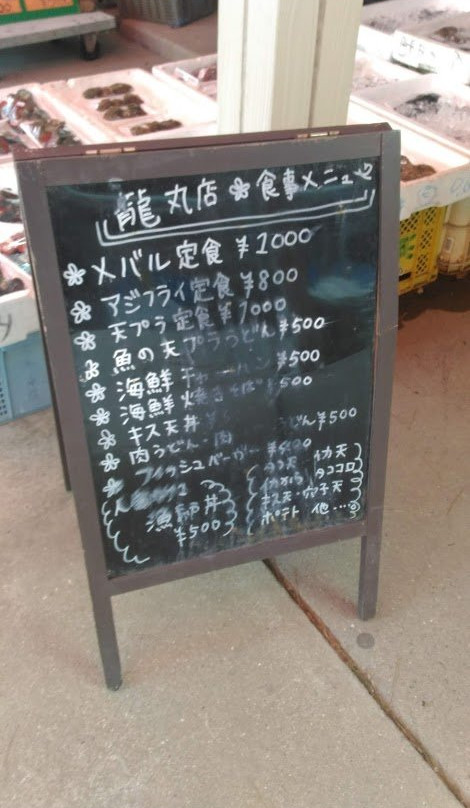 龍丸店 食事メニュー
メバル定食 ¥1000
アジフライ定食 ¥800
天プラ定食 ¥1000
魚の天プラうどん ¥500
海鮮チャーハン ¥500
海鮮焼きそば ¥500
キス天丼
肉うどん・肉 うどん ¥500
フィッシュバーガー
漁師丼
¥500
タコ天 イカ天
イカから タココロ
キス天・穴子天
ポテト 他…